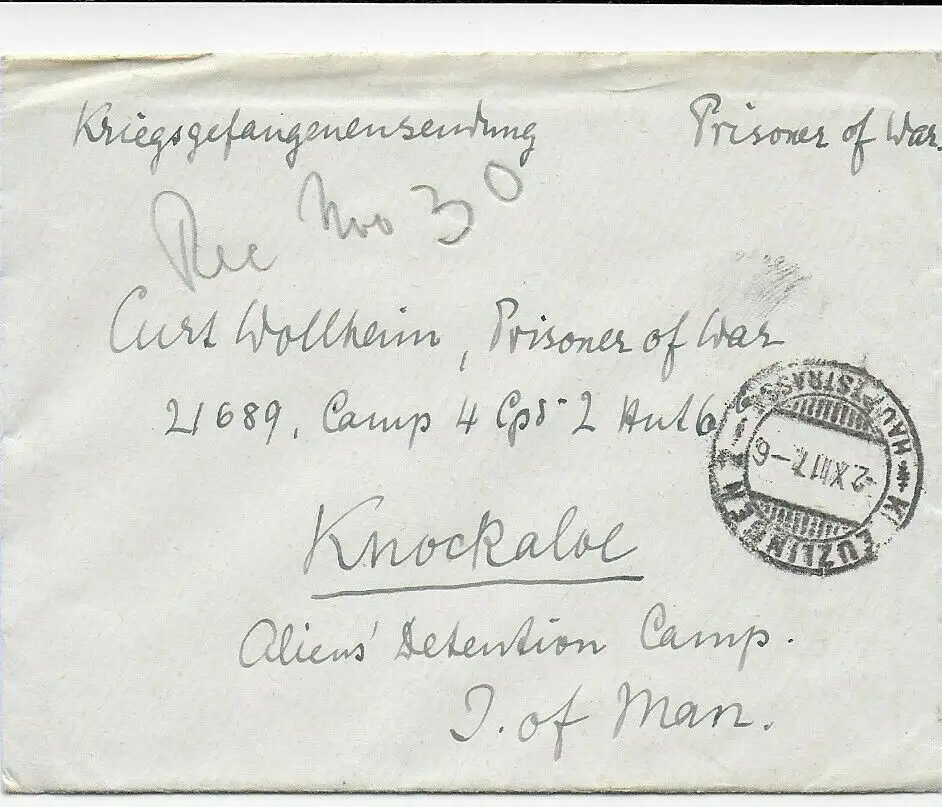 Kriegsgefangenensendung Prisoner of War.
Rec Nov 30
Curt Wollheim, Prisoner of War
21689, Camp 4 Cps 2 Hut 6
KREUZLINGEN 1 HAUPTSTRASSE
-2.XII.17.-6
Knockaloe
Aliens' Detention Camp.
I. of Man.